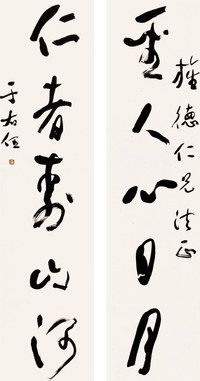 德仁兄法正
聖人心日月
仁者壽山河
于右任